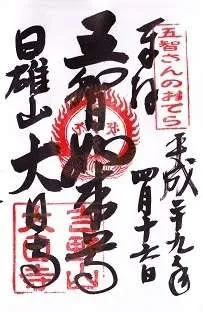 五智さんのおてら
奉拝
平成二十九年
四月十六日
五智如来尊
日雄山
大日寺
吉野山
大日寺